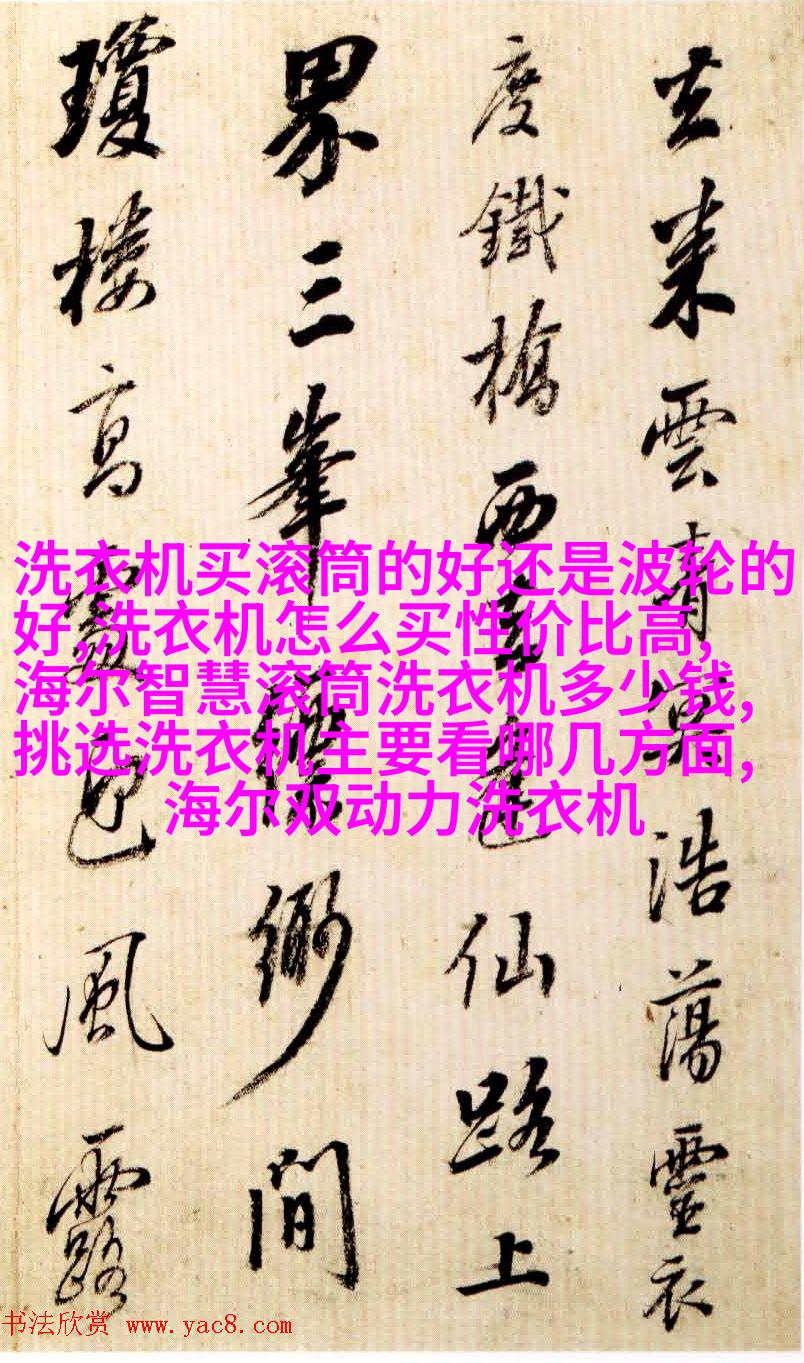 去来雲青冥浩蕩靈衣
度鐵橋西仙路上
界三峯縹緲間
瓊樓高處風露
洗衣机买滚筒的好还是波轮的
好,洗衣机怎么买性价比高,
海尔智慧滚筒洗衣机多少钱,
挑选洗衣机主要看哪几方面,
海尔双动力洗衣机
书法欣赏 www.yac8.com